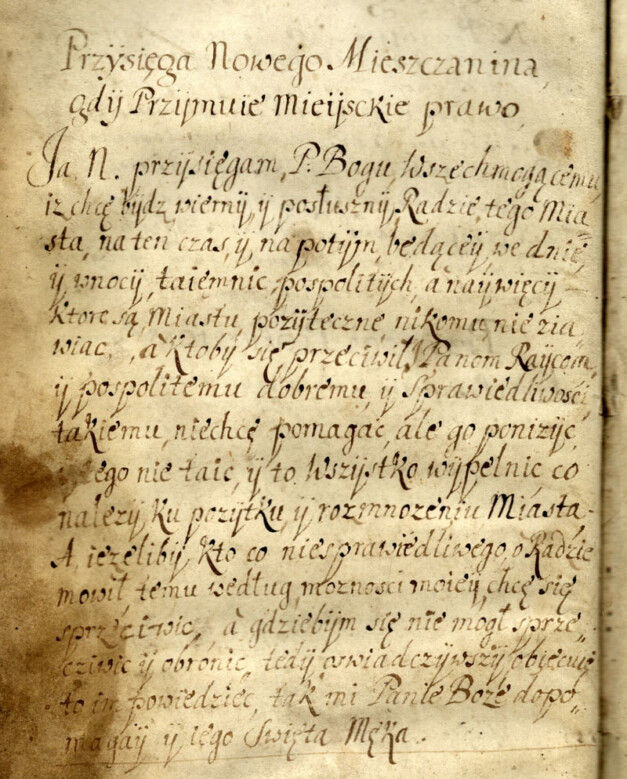 Przysięga Nowego Mieszczanina,
gdÿ Przÿmuie Mieÿsckie prawo,
Ja, N. przÿsięgam, P: Bogu, Wszechmogącemu,
iz chcę bÿdz wiernÿ, ÿ posłusznÿ, Radzie, tego Mia=
sta, na ten czas, ÿ, na potÿm, będąceÿ, we dnie,
ÿ, wnocÿ, taiemnic, pospolitÿch, a naÿwięcÿ
ktore są, Miastu, pozÿteczne, nikomu, nie zia
wiac, a ktoby się przeciwił, Panom Raÿcom,
ÿ pospolitemu dobremu, ÿ Sprawiedliwości,
takiemu, niechcę pomagac, ale go ponizÿc,
ÿ tego nie taic, ÿ to, Wszÿstko, wÿpełnic, co
nalezÿ, ku pozÿtku, ÿ rozmnozeniu Miasta.
A, iezelibÿ, kto co niesprawiedliwego, o Radzie
mowił temu według, moznosci moieÿ, chcę się
sprzeciwic, a gdziebÿm się nie mogł sprze=
cziwic ÿ obronic, tedÿ oswiadczÿwszÿ obiecuię
to im powiedziec, tak mi Panie Boze dopo=
magaÿ ÿ iego Swięta Męka.